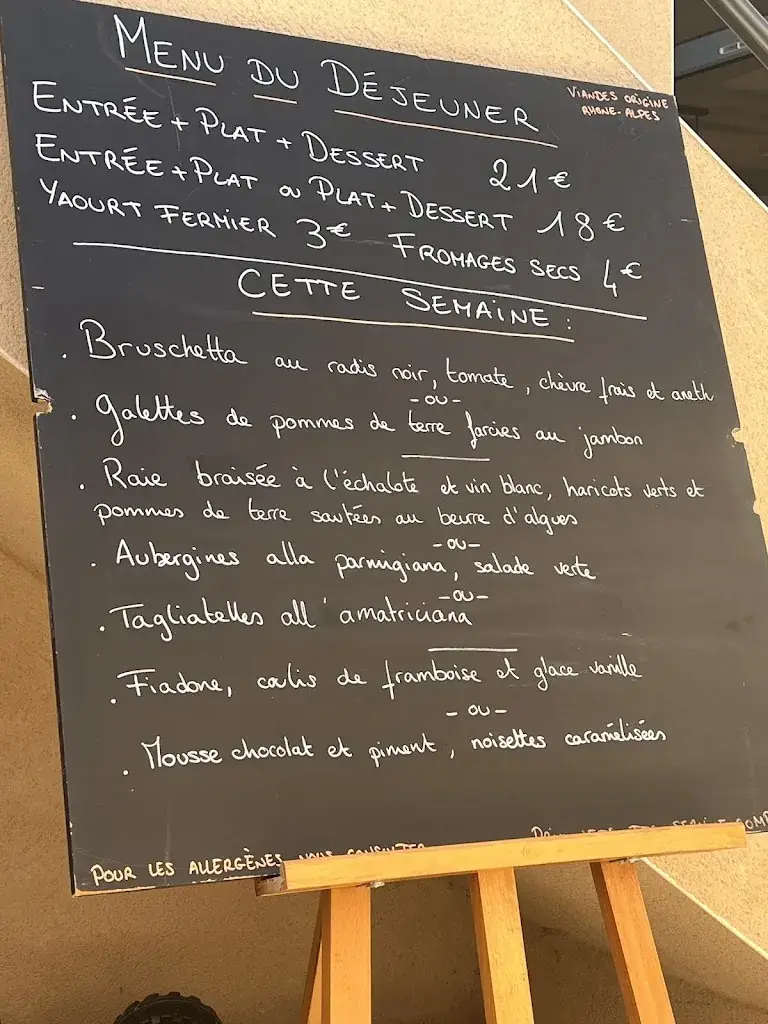 MENU DU DÉJEUNER
VIANDES ORIGINE
RHONE-ALPES
ENTRÉE + PLAT + DESSERT 21€
ENTRÉE + PLAT ou PLAT + DESSERT 18€
YAOURT FERMIER 3€ FROMAGES SECS 4€
CETTE SEMAINE :
. Bruschetta au radis noir, tomate, chèvre frais et aneth
- ou -
. Galettes de pommes de terre farcies au jambon
. Raie braisée à l'échalote et vin blanc, haricots verts et
pommes de terre sautées au beurre d'algues
- ou -
. Aubergines alla parmigiana, salade verte
- ou -
. Tagliatelles all'amatriciana
. Fiadone, coulis de framboise et glace vanille
- ou -
. Mousse chocolat et piment, noisettes caramélisées
POUR LES ALLERGÈNES NOUS CONSULTER